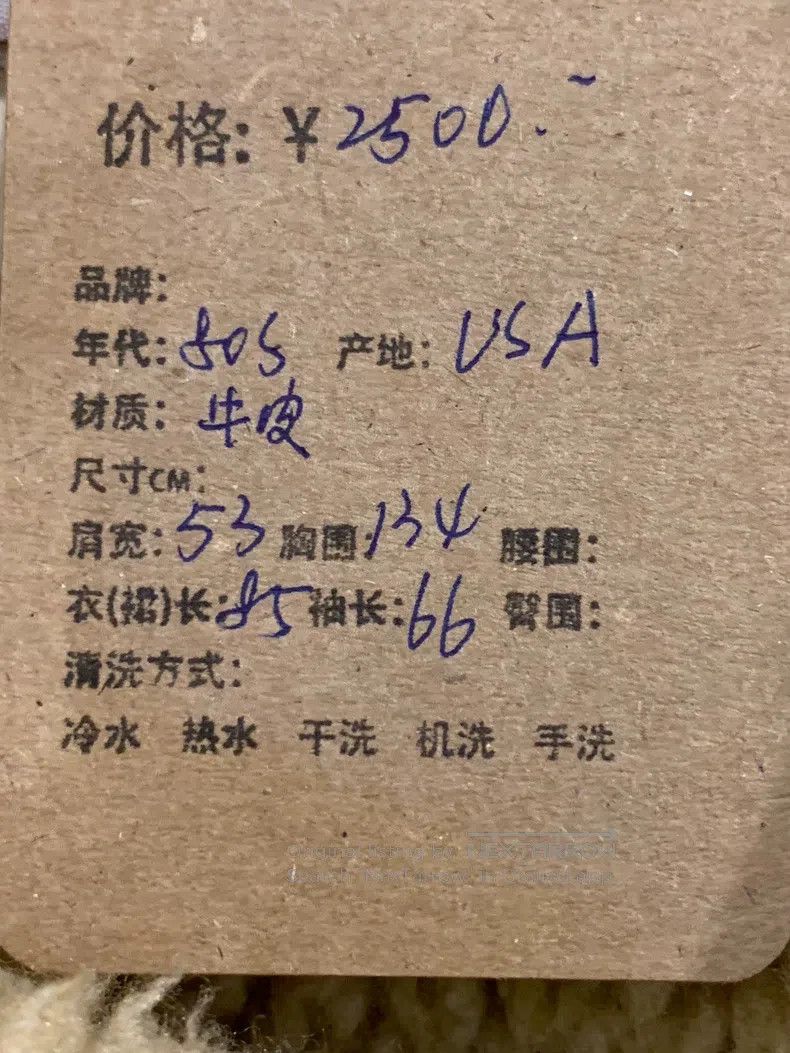 价格: ¥2500.-
品牌:
年代: 80s 产地: USA
材质: 牛皮
尺寸CM:
肩宽: 53 胸围: 134 腰围:
衣(裙)长: 85 袖长: 66 臀围:
清洗方式:
冷水 热水 干洗 机洗 手洗